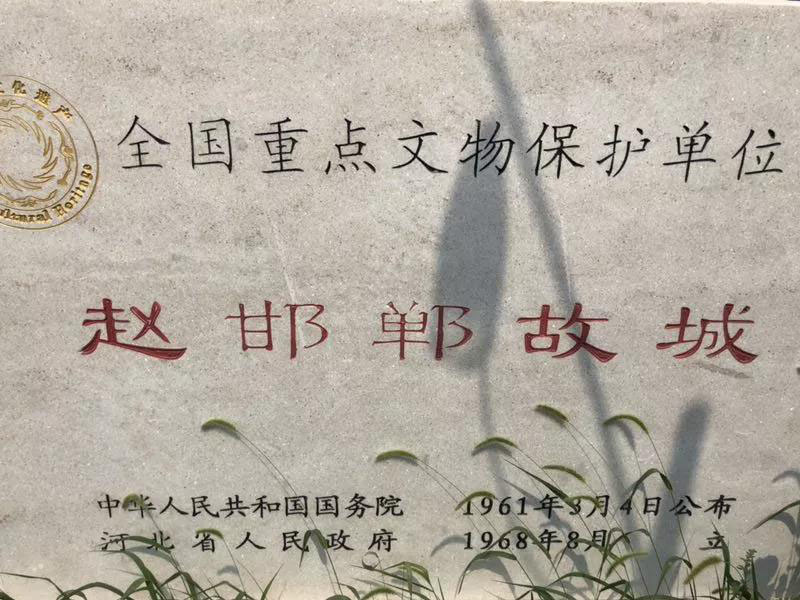 全国重点文物保护单位
赵邯郸故城
中华人民共和国国务院 1961年3月4日公布
河北省人民政府 1968年8月 立
文化遗产
Cultural Heritage